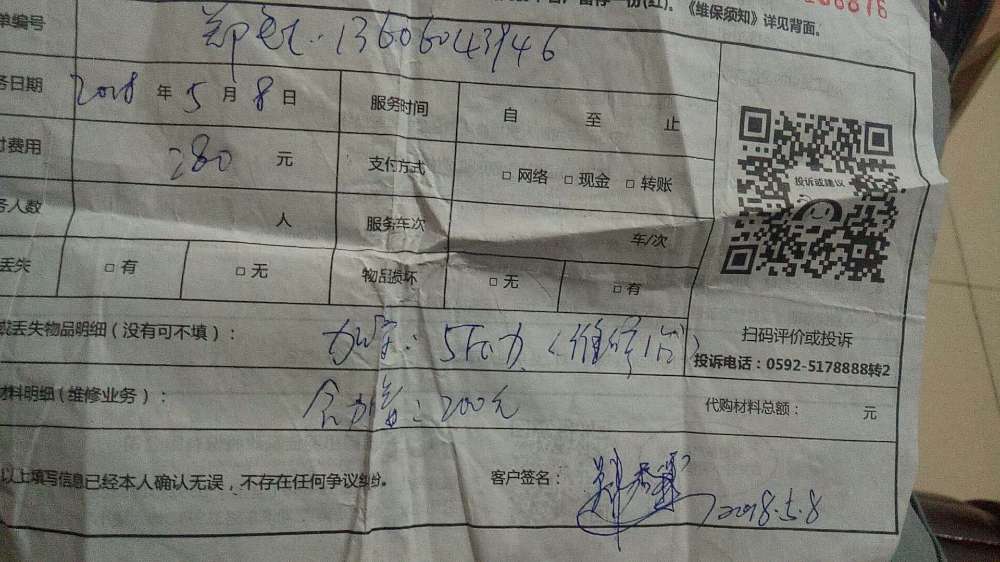 《维保须知》详见背面。
单编号 13606043946
务日期 2018 年 5 月 8 日 服务时间 自 至 止
付费用 280 元 支付方式 □ 网络 □ 现金 □ 转账
务人数 人 服务车次 车/次
丢失 □ 有 □ 无 物品损坏 □ 无 □ 有
投诉或建议
扫码评价或投诉
投诉电话：0592-5178888转2
或丢失物品明细（没有可不填）：
材料明细（维修业务）： 200元 代购材料总额： 元
以上填写信息已经本人确认无误，不存在任何争议纠纷。 客户签名： 2018.5.8